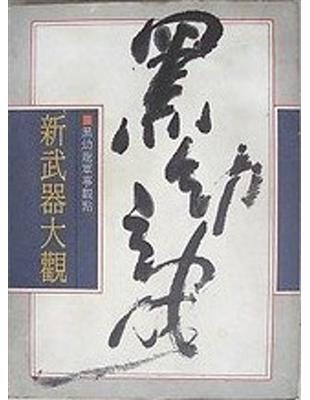 黑幼龍
黑幼龍軍事觀點
新武器大觀